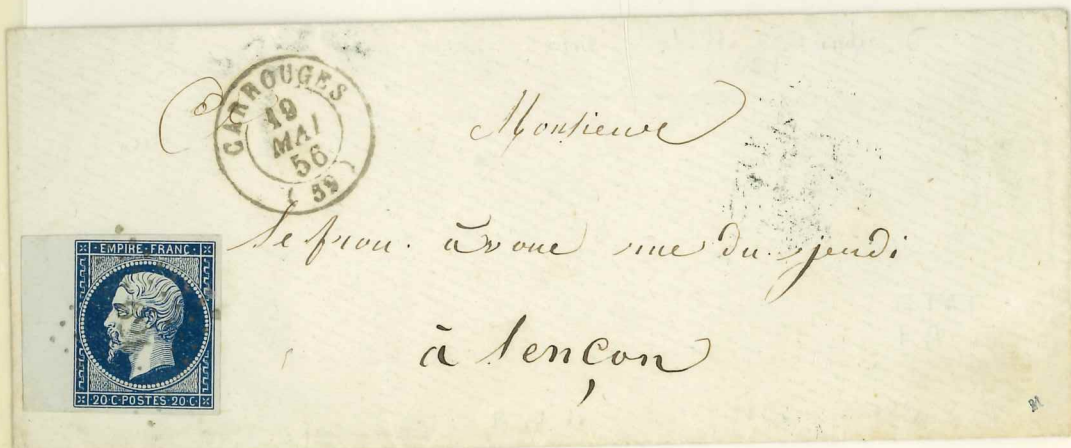 CARROUGES
19
MAI
56
( 59 )
Monsieur
lefrou. àvoué rue du jeudi
à lençon
· EMPIRE · FRANC ·
20 · C · POSTES · 20 · C ·